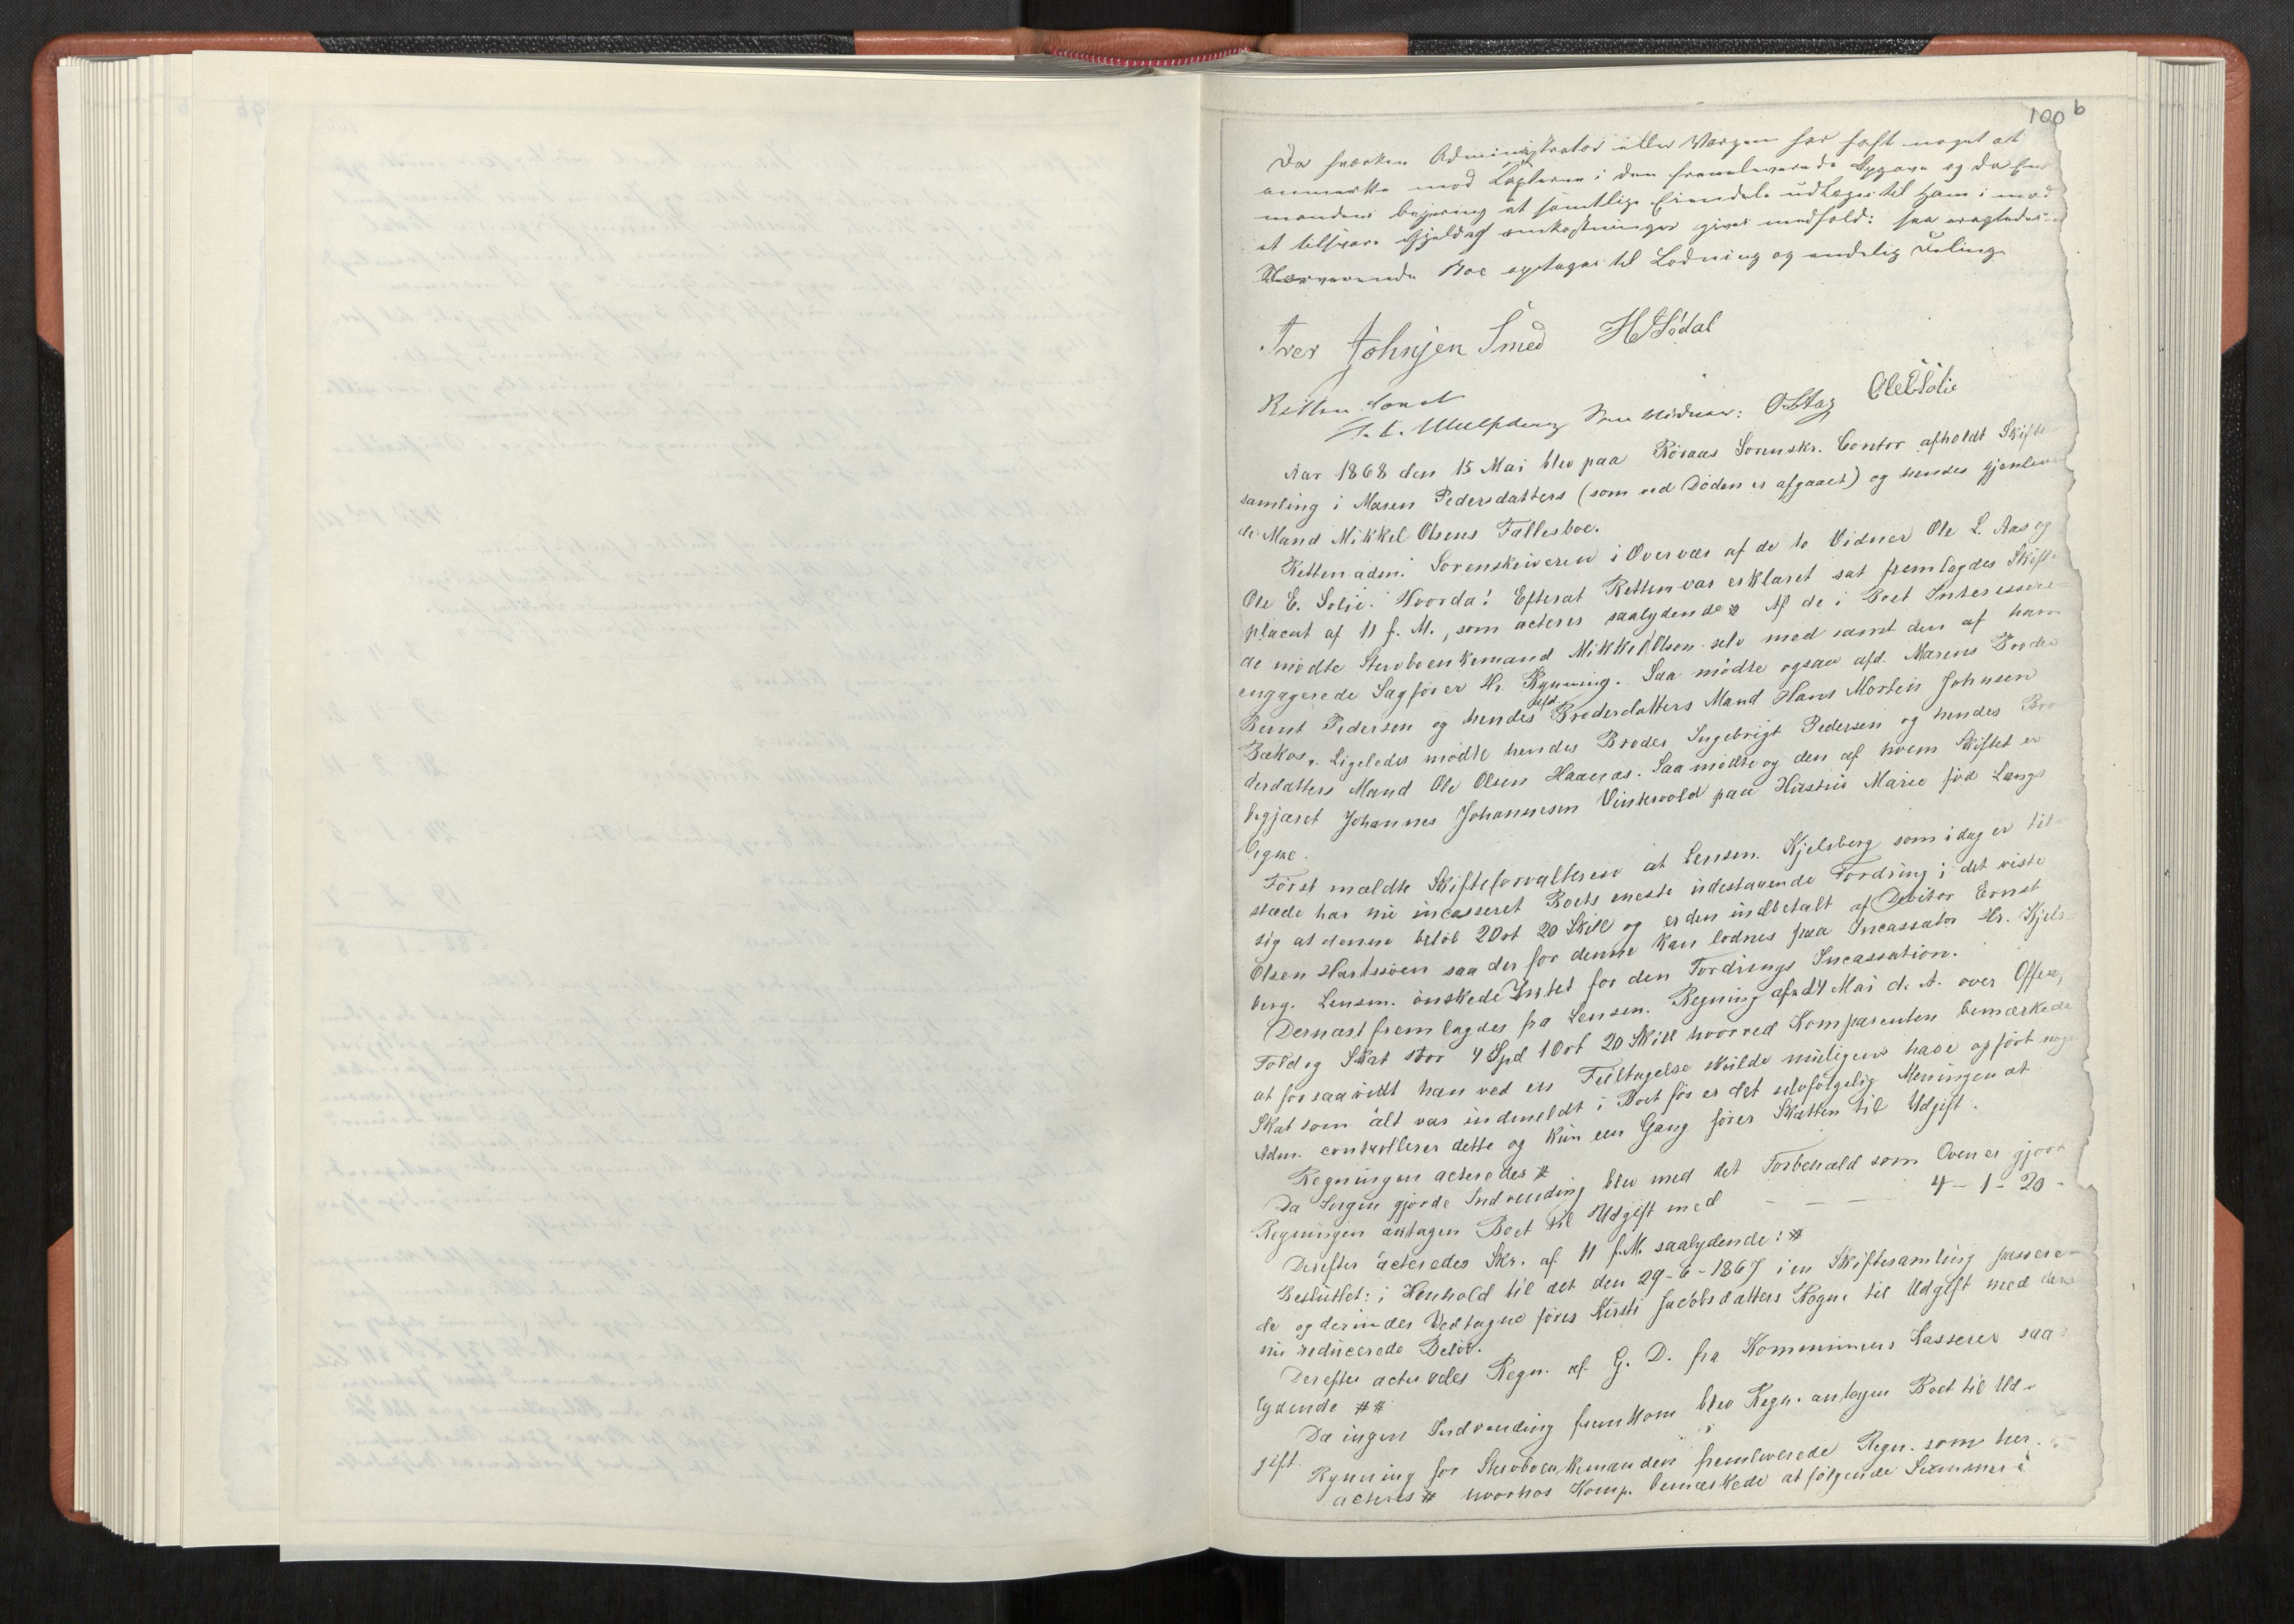 100 b
Da hverken Administrator eller Værgen har haft noget at
anmærke mod Lagterne i den fremleverede Opgave og da En-
mandens begjæring at samtlige Eiendele udlægges til ham i mod
at tilsvare Gjeld og omkostninger gives medhold: saa eragtedes
Nærværende Boe optages til Lodning og endelig Deling
Iver Johnsen Smed H Hödal
Retten hævet
Som Vidner: OLAas Ole E Solie
Aar 1868 den 15 Mai blev paa Röraas Sorenskr. Contor afholdt Skifte
samling i Maren Pedersdatters (som ved Döden er afgaaet) og hendes gjenleven
de Mand Mikkel Olsens Fællesboe.
Retten adm. Sorenskriveren i Overvær af de to Vidner Ole L. Aas og
Ole E. Solie. Hvorda! Efterat Retten var erklæret sat fremlagdes Skifte
placat af 11 f. M., som acteres saalydende # Af de i Boet Interessere
de mödte Stervboenkemand Mikkel Olsen selv med samt den af ham
engagerede Sagförer Hr Rynning. Saa mödte ogsaa afd. Marens Broder
Bernt Pedersen og hendes afd. Broderdatters Mand Hans Morten Johnsen
Bækos. Ligeledes mödte hendes Broder Ingebrigt Pedersen og hendes Bro
derdatters Mand Ole Olsen Haanæs. Saa mödte og den af hvem Skiftet er
begjæret Johannes Johannesen Vintervold paa Hustru Marie föd Langs
Vegne.
Först meldte Skifteforvalteren at Lensm. Kjelsberg som idag er til-
stæde har nu incasseret Boets eneste udestaaende Fordring i det viste
sig at denne belöb 2 Ort 20 Skill og er den indbetalt af Debitor Ernst
Olsen Hartssöen saa der for denne kan lodnes paa Incassator Hr. Kjels-
berg. Lensm. önskede Intet for den Fordrings Incassation.
Dernæst fremlagdes fra Lensm. Regning af 14 Mai d. A. over Offer,
Told og Skat stor 4 Spd 1 Ort 20 Skill hvorved Komparenten bemærkede
at forsaavidt han ved en Feiltagelse skulde muligens have opfört noge
Skat som alt var indmeldt i Boet för er det selvfölgelig Meningen at
Adm. controllerer dette og kun een Gang förer Skatten til Udgift.
Regningen acteredes #
Da Ingen gjorde Indvending blev med det Forbehold som Oven er gjort
Regningen antagen Boet til Udgift med — — — 4 - 1 - 20 -
Derefter acteredes Skr. af 11 f. M. saalydende: #
Besluttet: i Henhold til det den 29-6-1867 i en Skiftesamling passere-
de og derunder Vedtagne föres Kirsti Jacobsdatters Regn. til Udgift med den
nu reducerede Belöb.
Derefter acteredes Regn. af G. D. fra Kommunens Kasserer saa
lydende ##
Da ingen Indvending fremkom blev Regn. antagen Boet til Ud-
gift.
Rynning for Stervboenkemanden fremleverede Regn. som her
acteres # hvorhos Komp. bemærkede at fölgende Summer i